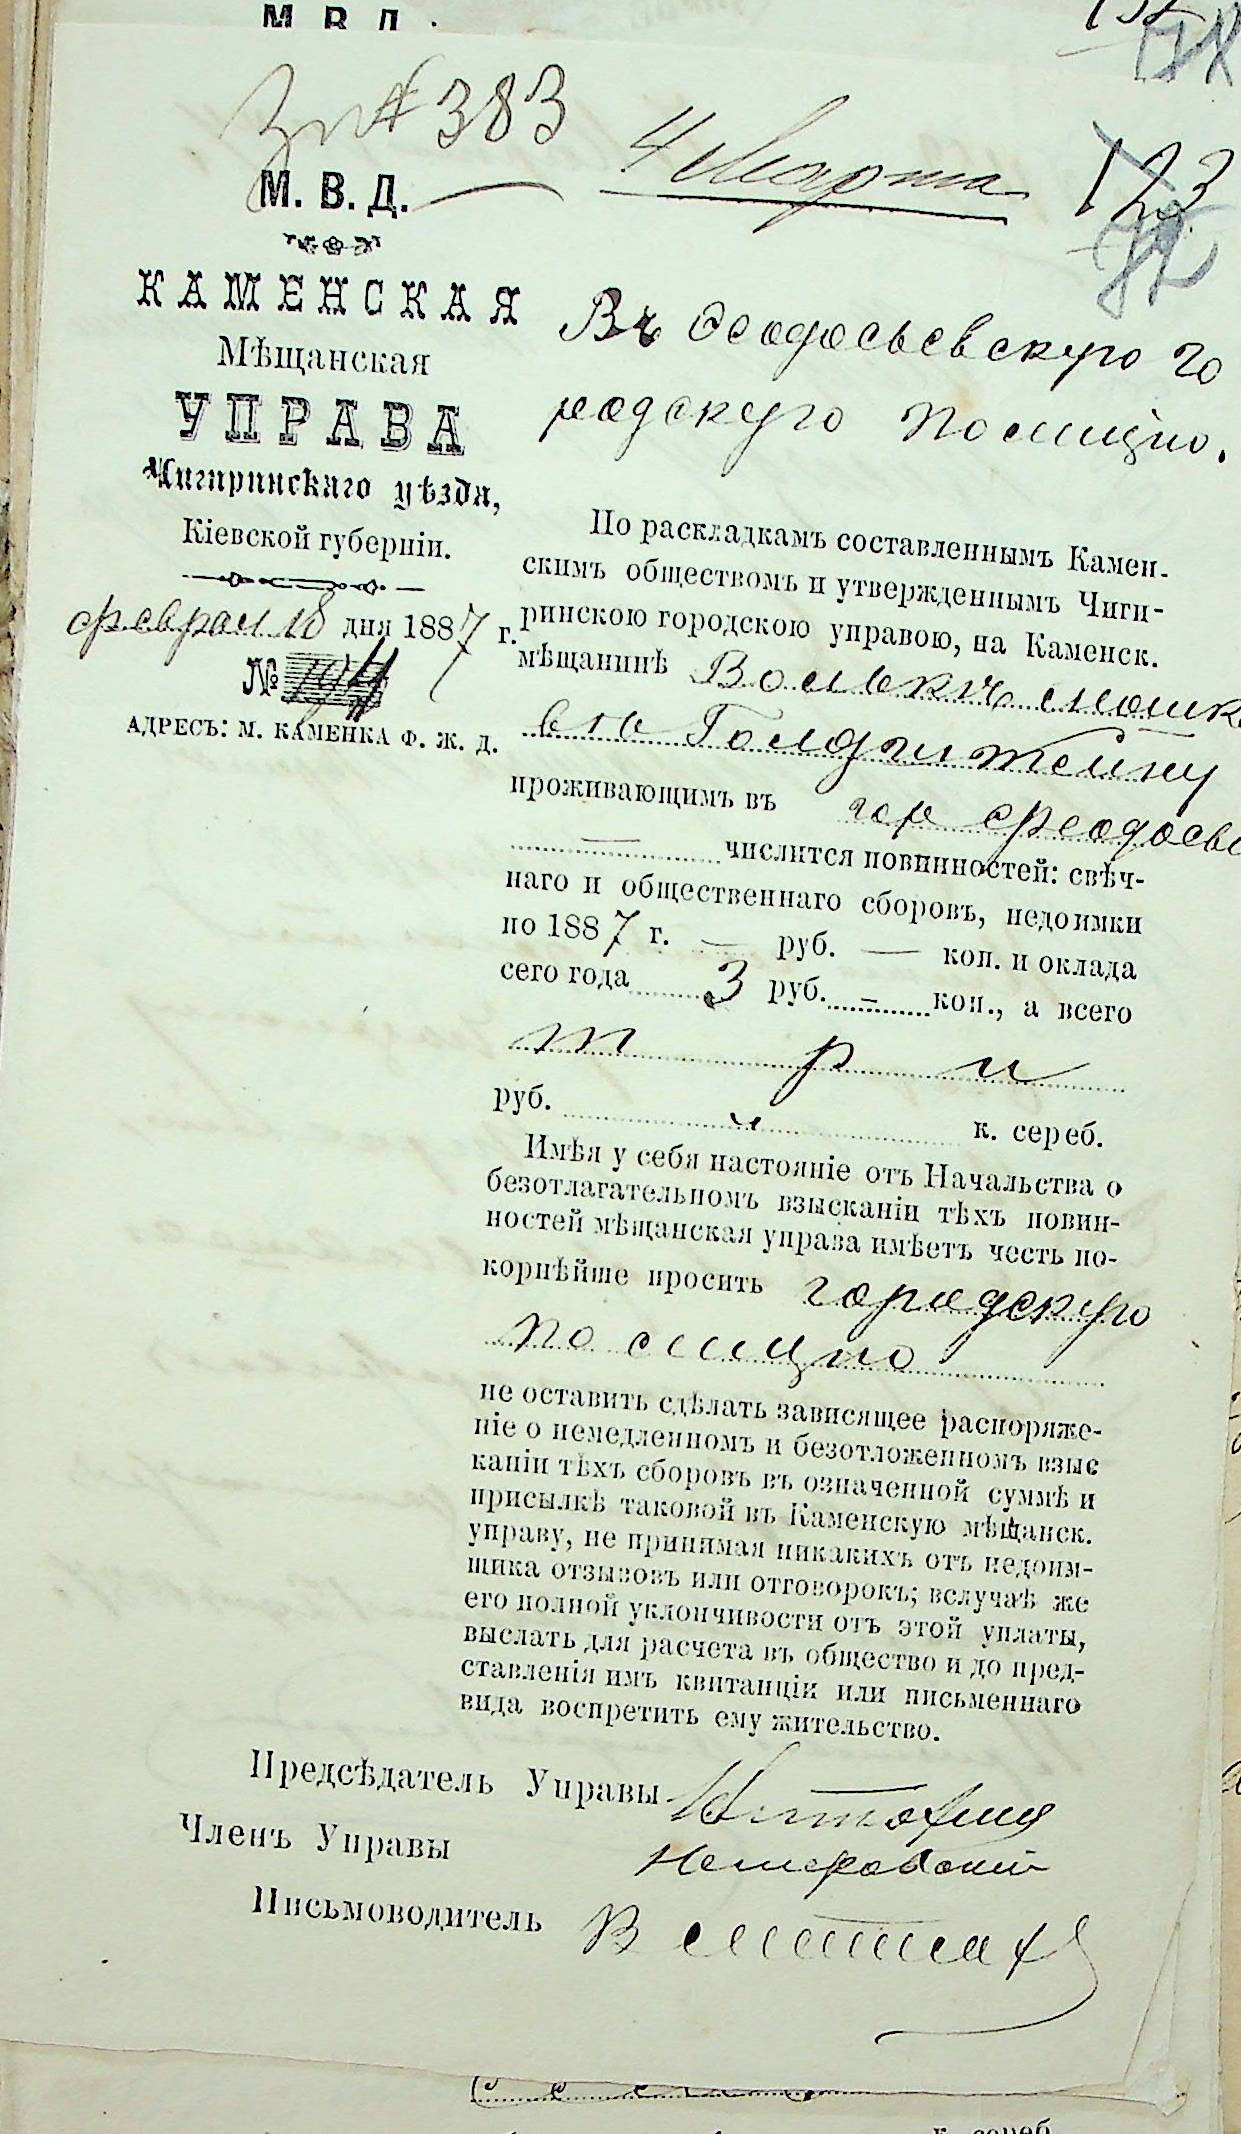 М. В. Д.
№ 383
4 Марта
123
М. В. Д.
КАМЕНСКАЯ
Мѣщанская
УПРАВА
Чигиринскаго уѣзда,
Кіевской губерніи.
феврал 18 дня 1887 г.
№
АДРЕСЪ: М. КАМЕНКА Ф. Ж. Д.
Въ Ѳеодосьевскую го
родскую полицію.
По раскладкамъ составленнымъ Камен-
скимъ обществомъ и утвержденнымъ Чиги-
ринскою городскою управою, на Каменск.
мѣщанинѣ Волькъ Мошко
вѣ Гольдштейну
проживающимъ въ гор Феодосьи
— числится повинностей: свѣч-
наго и общественнаго сборовъ, недоимки
по 1887 г. — руб. — коп. и оклада
сего года 3 руб. - коп., а всего
три
руб. к. сереб.
Имѣя у себя настояніе отъ Начальства о
безотлагательномъ взысканіи тѣхъ повин-
ностей мѣщанская управа имѣетъ честь по-
корнѣйше просить городскую
полицію
не оставить сдѣлать зависящее распоряже-
ніе о немедленномъ и безотложенномъ взыс
каніи тѣхъ сборовъ въ означенной суммѣ и
присылкѣ таковой въ Каменскую мѣщанск.
управу, не принимая никакихъ отъ недоим-
щика отзывовъ или отговорокъ; вслучаѣ же
его полной уклончивости отъ этой уплаты,
выслать для расчета въ общество и до пред-
ставленія имъ квитанціи или письменнаго
вида воспретить ему жительство.
Предсѣдатель Управы
Членъ Управы Немеровскій
Письмоводитель В
к. сереб.